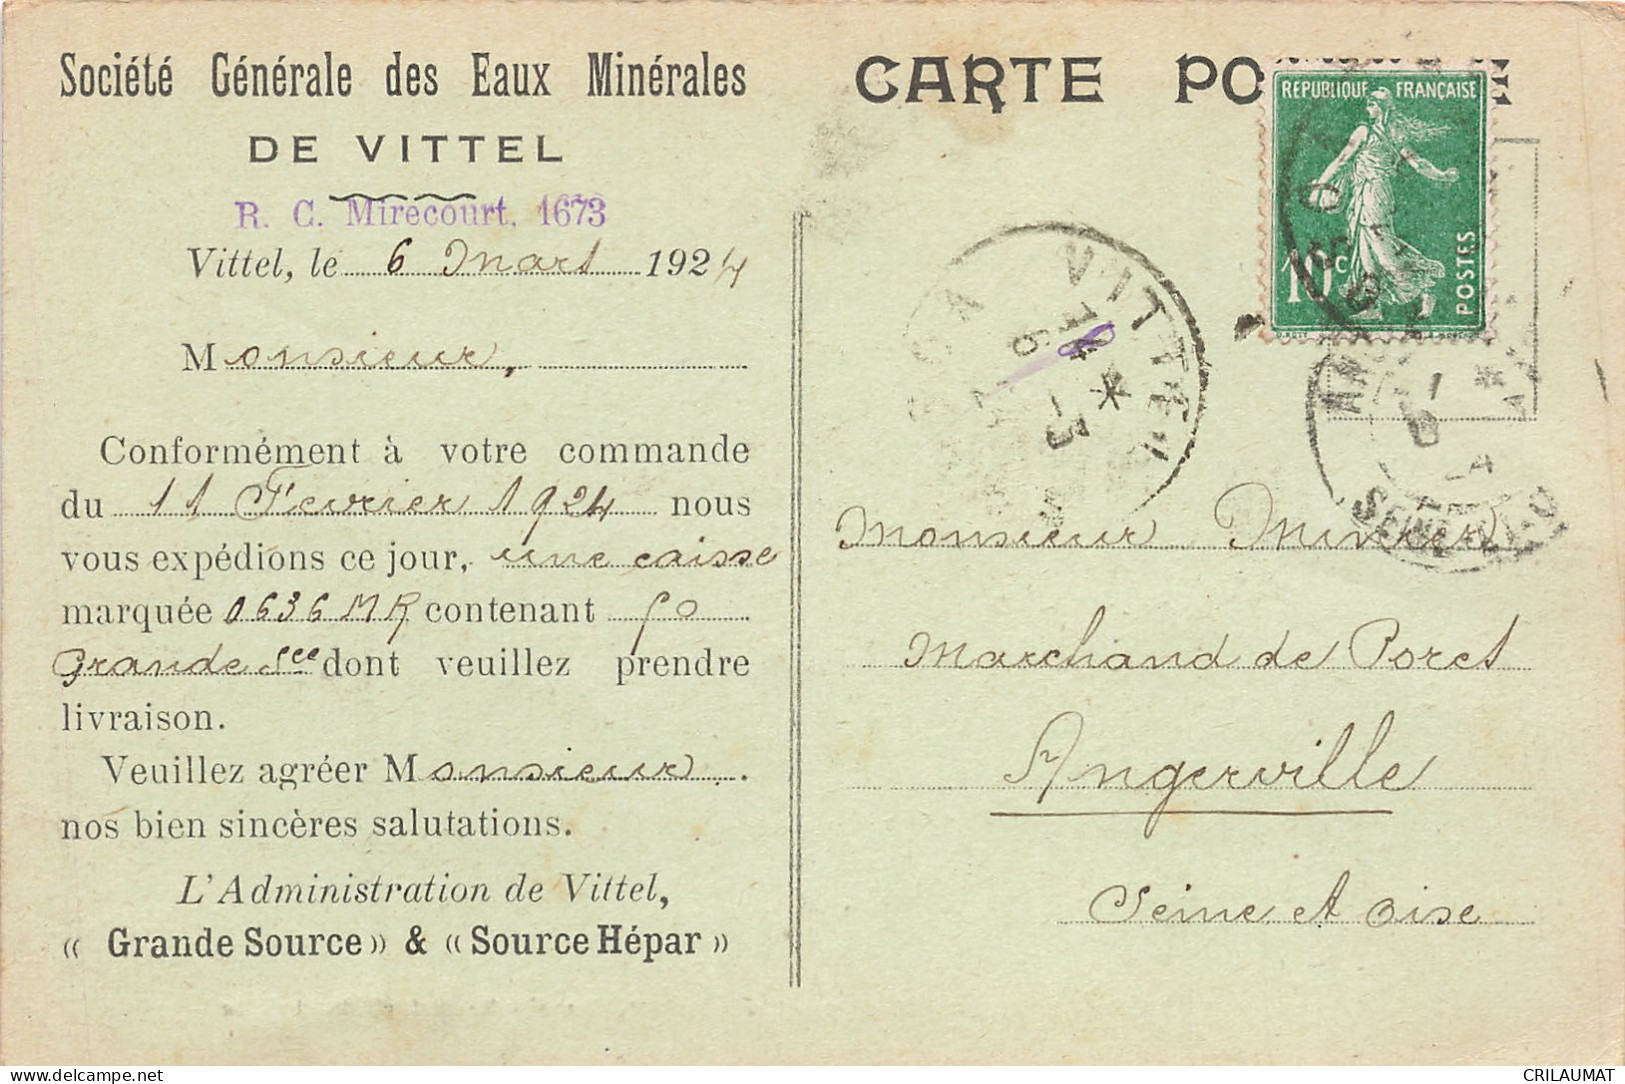 Société Générale des Eaux Minérales
DE VITTEL
R. C. Mirecourt. 1673
Vittel, le 6 Mars 1924
Monsieur,
Conformément à votre commande
du 11 Février 1924 nous
vous expédions ce jour, une caisse
marquée 0636 MR contenant 50
Grande Sce dont veuillez prendre
livraison.
Veuillez agréer Monsieur.
nos bien sincères salutations.
L'Administration de Vittel,
« Grande Source » & « Source Hépar »
CARTE PO E
REPUBLIQUE FRANÇAISE
10c
POSTES
VITTEL
6 -3
SEINE
Monsieur
Marchand de Porcs
Angerville
Seine et Oise
CRILAUMAT